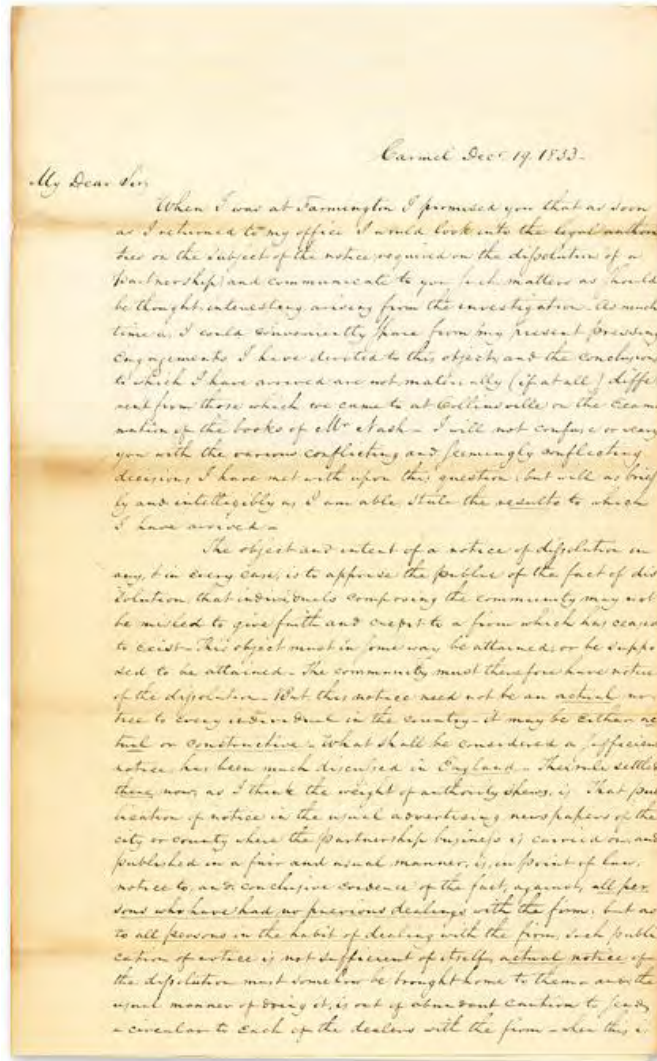 Carmel Decr 19. 1833-
My Dear Sir,
When I was at Farmington I promised you that as soon
as I returned to my office I would look into the legal author
ties on the subject of the notice required on the dissolution of a
partnership, and communicate to you such matters as should
be thought interesting arising from the investigation. As much
time as I could conveniently spare from my present pressing
engagements I have devoted to this object, and the conclusions
to which I have arrived are not materially (if at all) diffe
rent from those which we came to at Collinsville on the exami
nation of the books of Mr Nash - I will not confuse or weary
you with the various conflicting and seemingly conflicting
decisions I have met with upon this question, but will as brief
ly and intelligibly as I am able, state the results to which
I have arrived -
The object and intent of a notice of dissolution in
any, & in every case, is to apprise the public of the fact of dis
solution, that individuals composing the community may not
be misled to give faith and credit to a firm which has ceased
to exist - This object must in some way be attained, or be suppo
sed to be attained - The community must therefore have notice
of the dissolution - But this notice need not be an actual no-
tice to every individual in the country - it may be either ac
tual or constructive - What shall be considered a sufficient
notice, has been much discussed in England - The rule settled
there, now, as I think the weight of authority shews, is That pub
lication of notice in the usual advertising newspapers of the
city or county where the partnership business is carried on, and
published in a fair and usual manner, is, in point of law,
notice to, and conclusive evidence of the fact, against, all per
sons who have had no previous dealings with the firm; but as
to all persons in the habit of dealing with the firm, such publi
cation of notice is not sufficient of itself, actual notice of
the dissolution must somehow be brought home to them - and the
usual manner of doing it, is out of abundant caution to send
a circular to each of the dealers with the firm - when this is